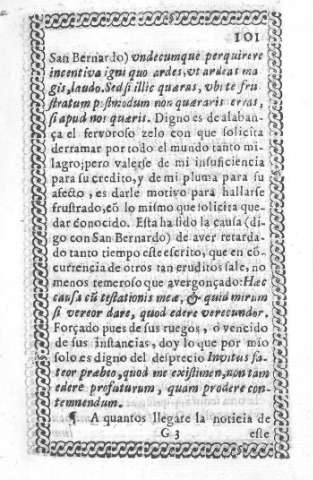 101
San Bernardo) vndecumque perquirere
incentiva igni quo ardes, vt ardeat ma
gis, laudo. Sed si illic quæras, vbi te fru
stratum postmodum non quæraris erras,
si apud nos quæris. Digno es de alaban-
ça el fervoroso zelo con que solicita
derramar por todo el mundo tanto mi-
lagro; pero valerse de mi insuficiencia
para su credito, y de mi pluma para su
afecto, es darle motivo para hallarse
frustrado, cõ lo mismo que solicita que-
dar conocido. Esta ha sido la causa (di-
go con San Bernardo) de aver retarda-
do tanto tiempo este escrito, que en cõ-
currencia de otros tan eruditos sale, no
menos temeroso que avergonçado: Hæc
causa cũ testationis meæ, & quid mirum
si vereor dare, quod edere verecundor.
Forçado pues de sus ruegos, ò vencido
de sus instancias, doy lo que por mio
solo es digno del desprecio Invitus fa-
teor præbeo, quod me existimen, non tam
edere profuturum, quam prodere con-
temnendum.
¶ A quantos llegare la noticia de
G 3 este